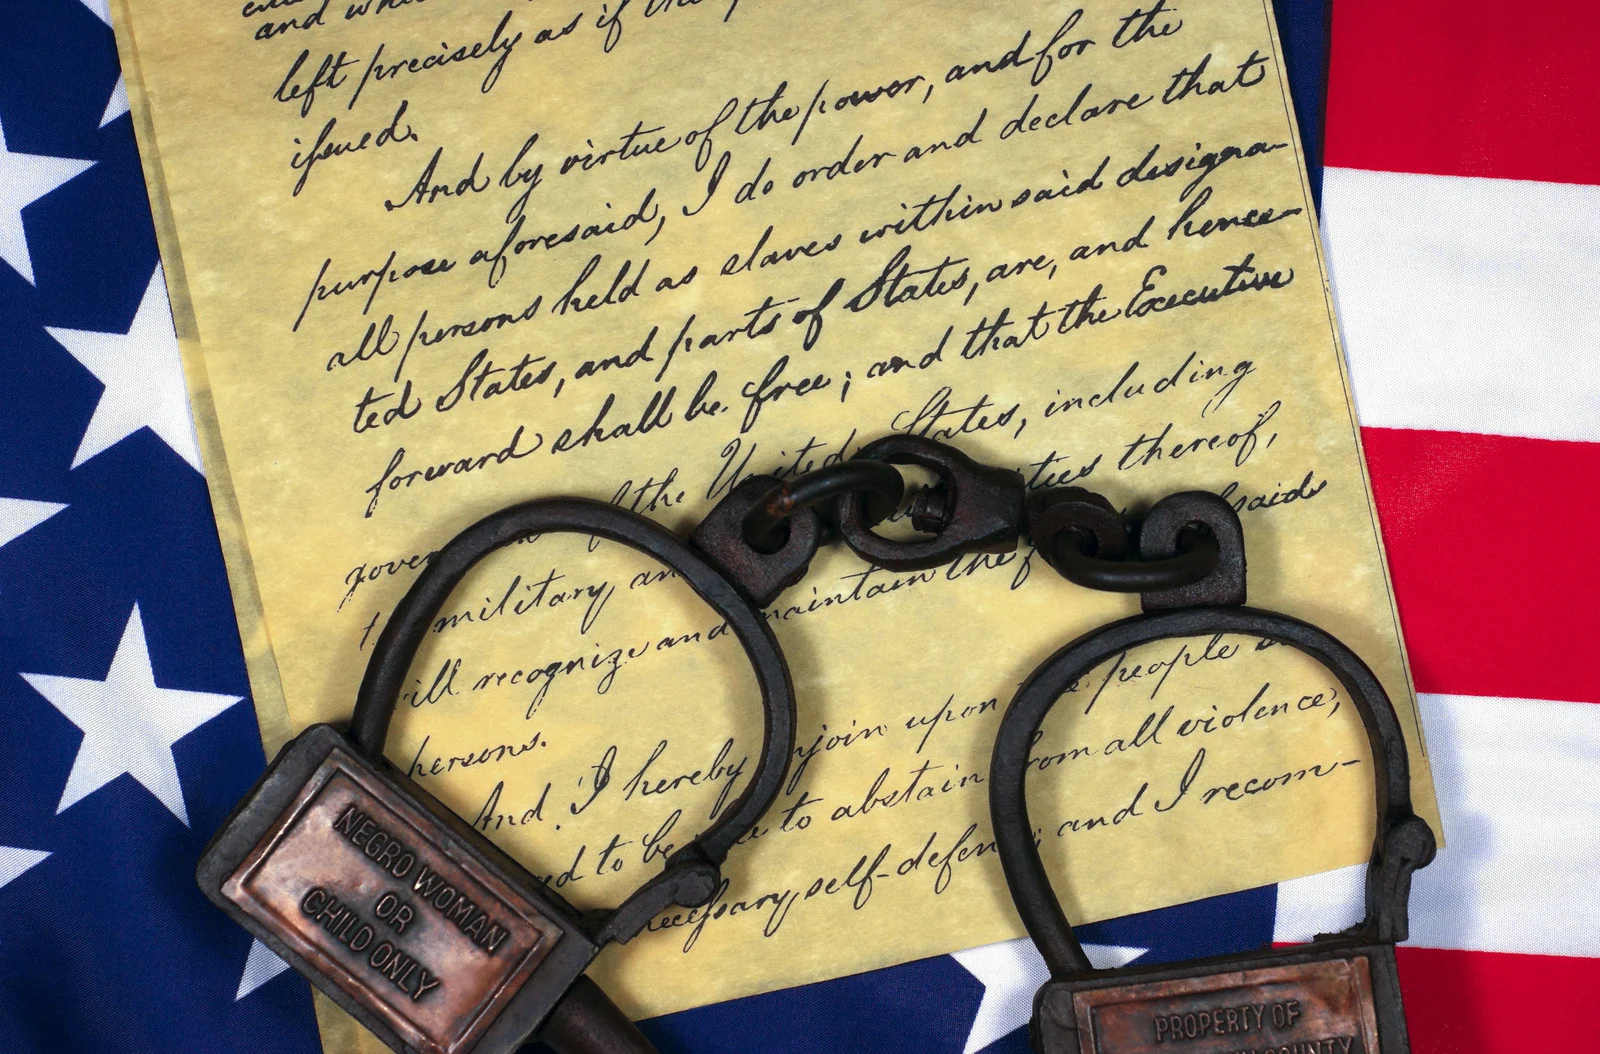 and
left precisely as if the
issued.
And by virtue of the power, and for the
purpose aforesaid, I do order and declare that
all persons held as slaves within said designa-
ted States, and parts of States, are, and hence-
forward shall be free; and that the Executive
gover of the United States, including
military an ties thereof,
ill recognize and maintain the f said
persons.
And I hereby njoin upon people
ed to be to abstain from all violence,
necessary self-defen ; and I recom-
NEGRO WOMAN
OR
CHILD ONLY
PROPERTY OF
COUNTY